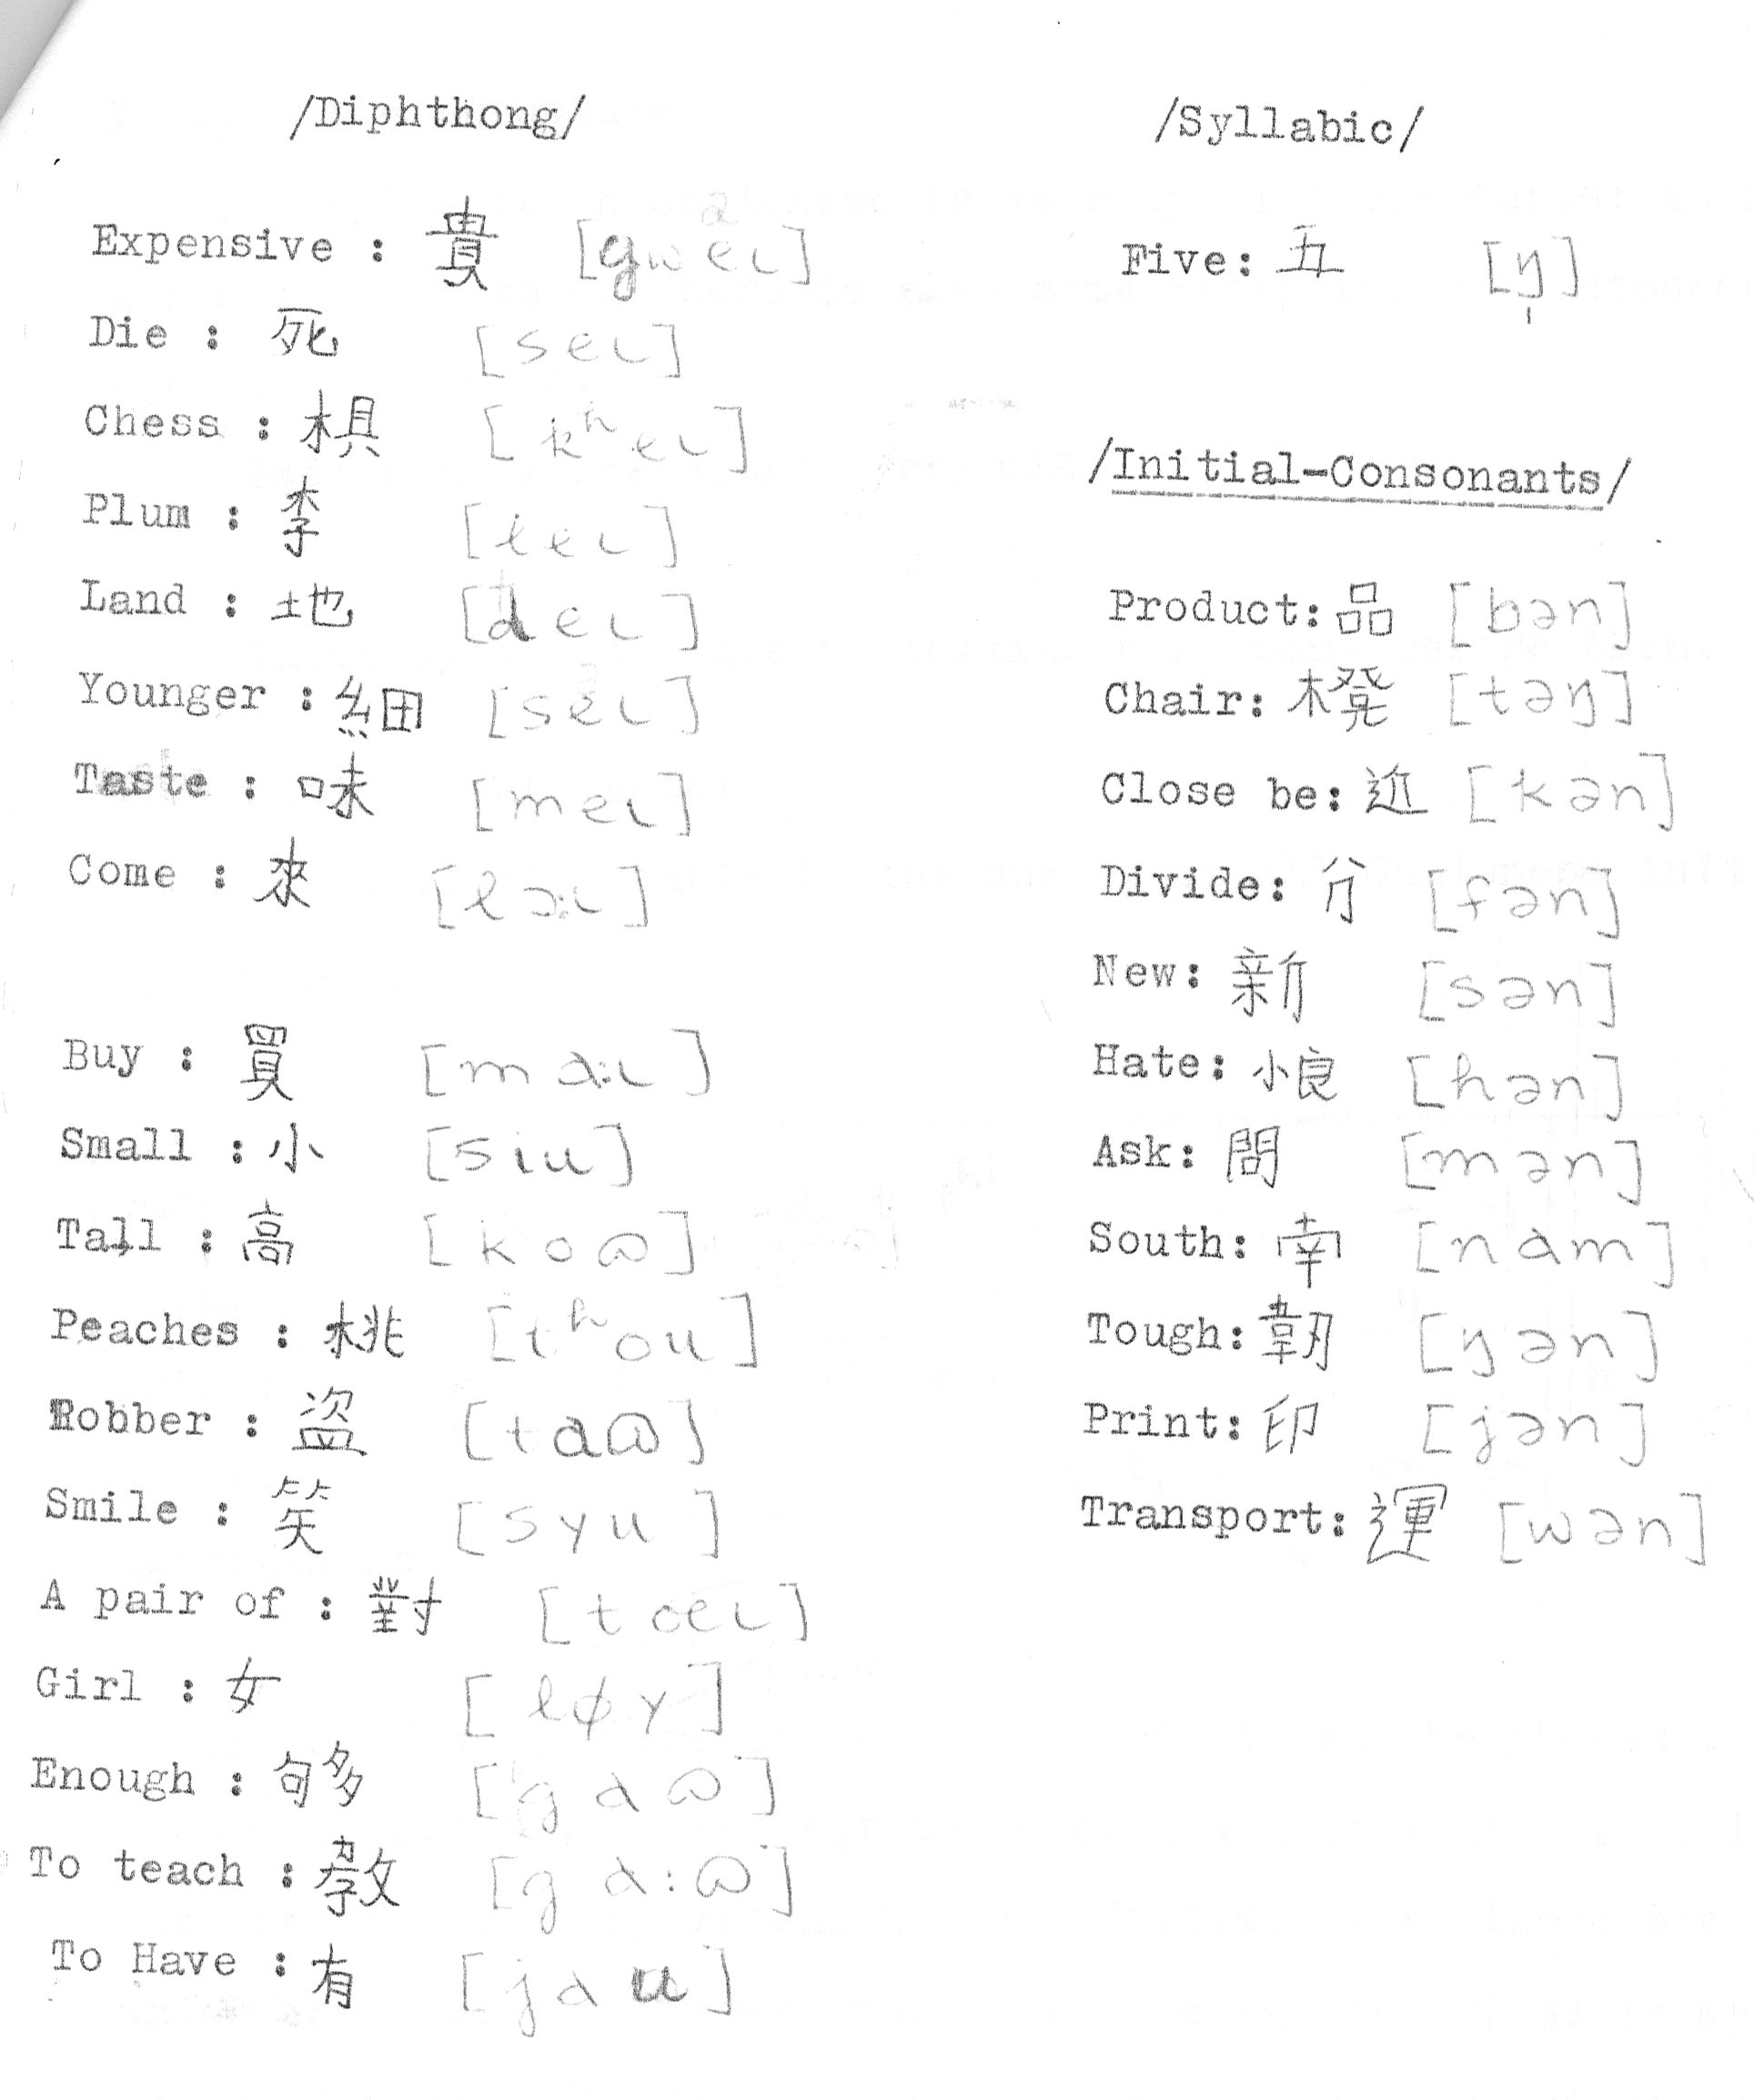 /Diphthong/
Expensive : 貴 [gweɩ]
Die : 死 [seɩ]
Chess : 棋 [kʰeɩ]
Plum : 李 [leɩ]
Land : 地 [deɩ]
Younger : 細 [seɩ]
Taste : 味 [meɩ]
Come : 來 [lɔ:ɩ]
Buy : 買 [ma:ɩ]
Small : 小 [siu]
Tall : 高 [koɷ]
Peaches : 桃 [tʰou]
Robber : 盜 [taɷ]
Smile : 笑 [syu]
A pair of : 對 [tœɩ]
Girl : 女 [løy]
Enough : 夠 [gaɷ]
To teach : 教 [ga:ɷ]
To Have : 有 [jau]
/Syllabic/
Five: 五 [ŋ̩]
/Initial-Consonants/
Product: 品 [bən]
Chair: 櫈 [təŋ]
Close be: 近 [kən]
Divide: 分 [fən]
New: 新 [sən]
Hate: 恨 [hən]
Ask: 問 [mən]
South: 南 [nam]
Tough: 韌 [ŋən]
Print: 印 [jən]
Transport: 運 [wən]